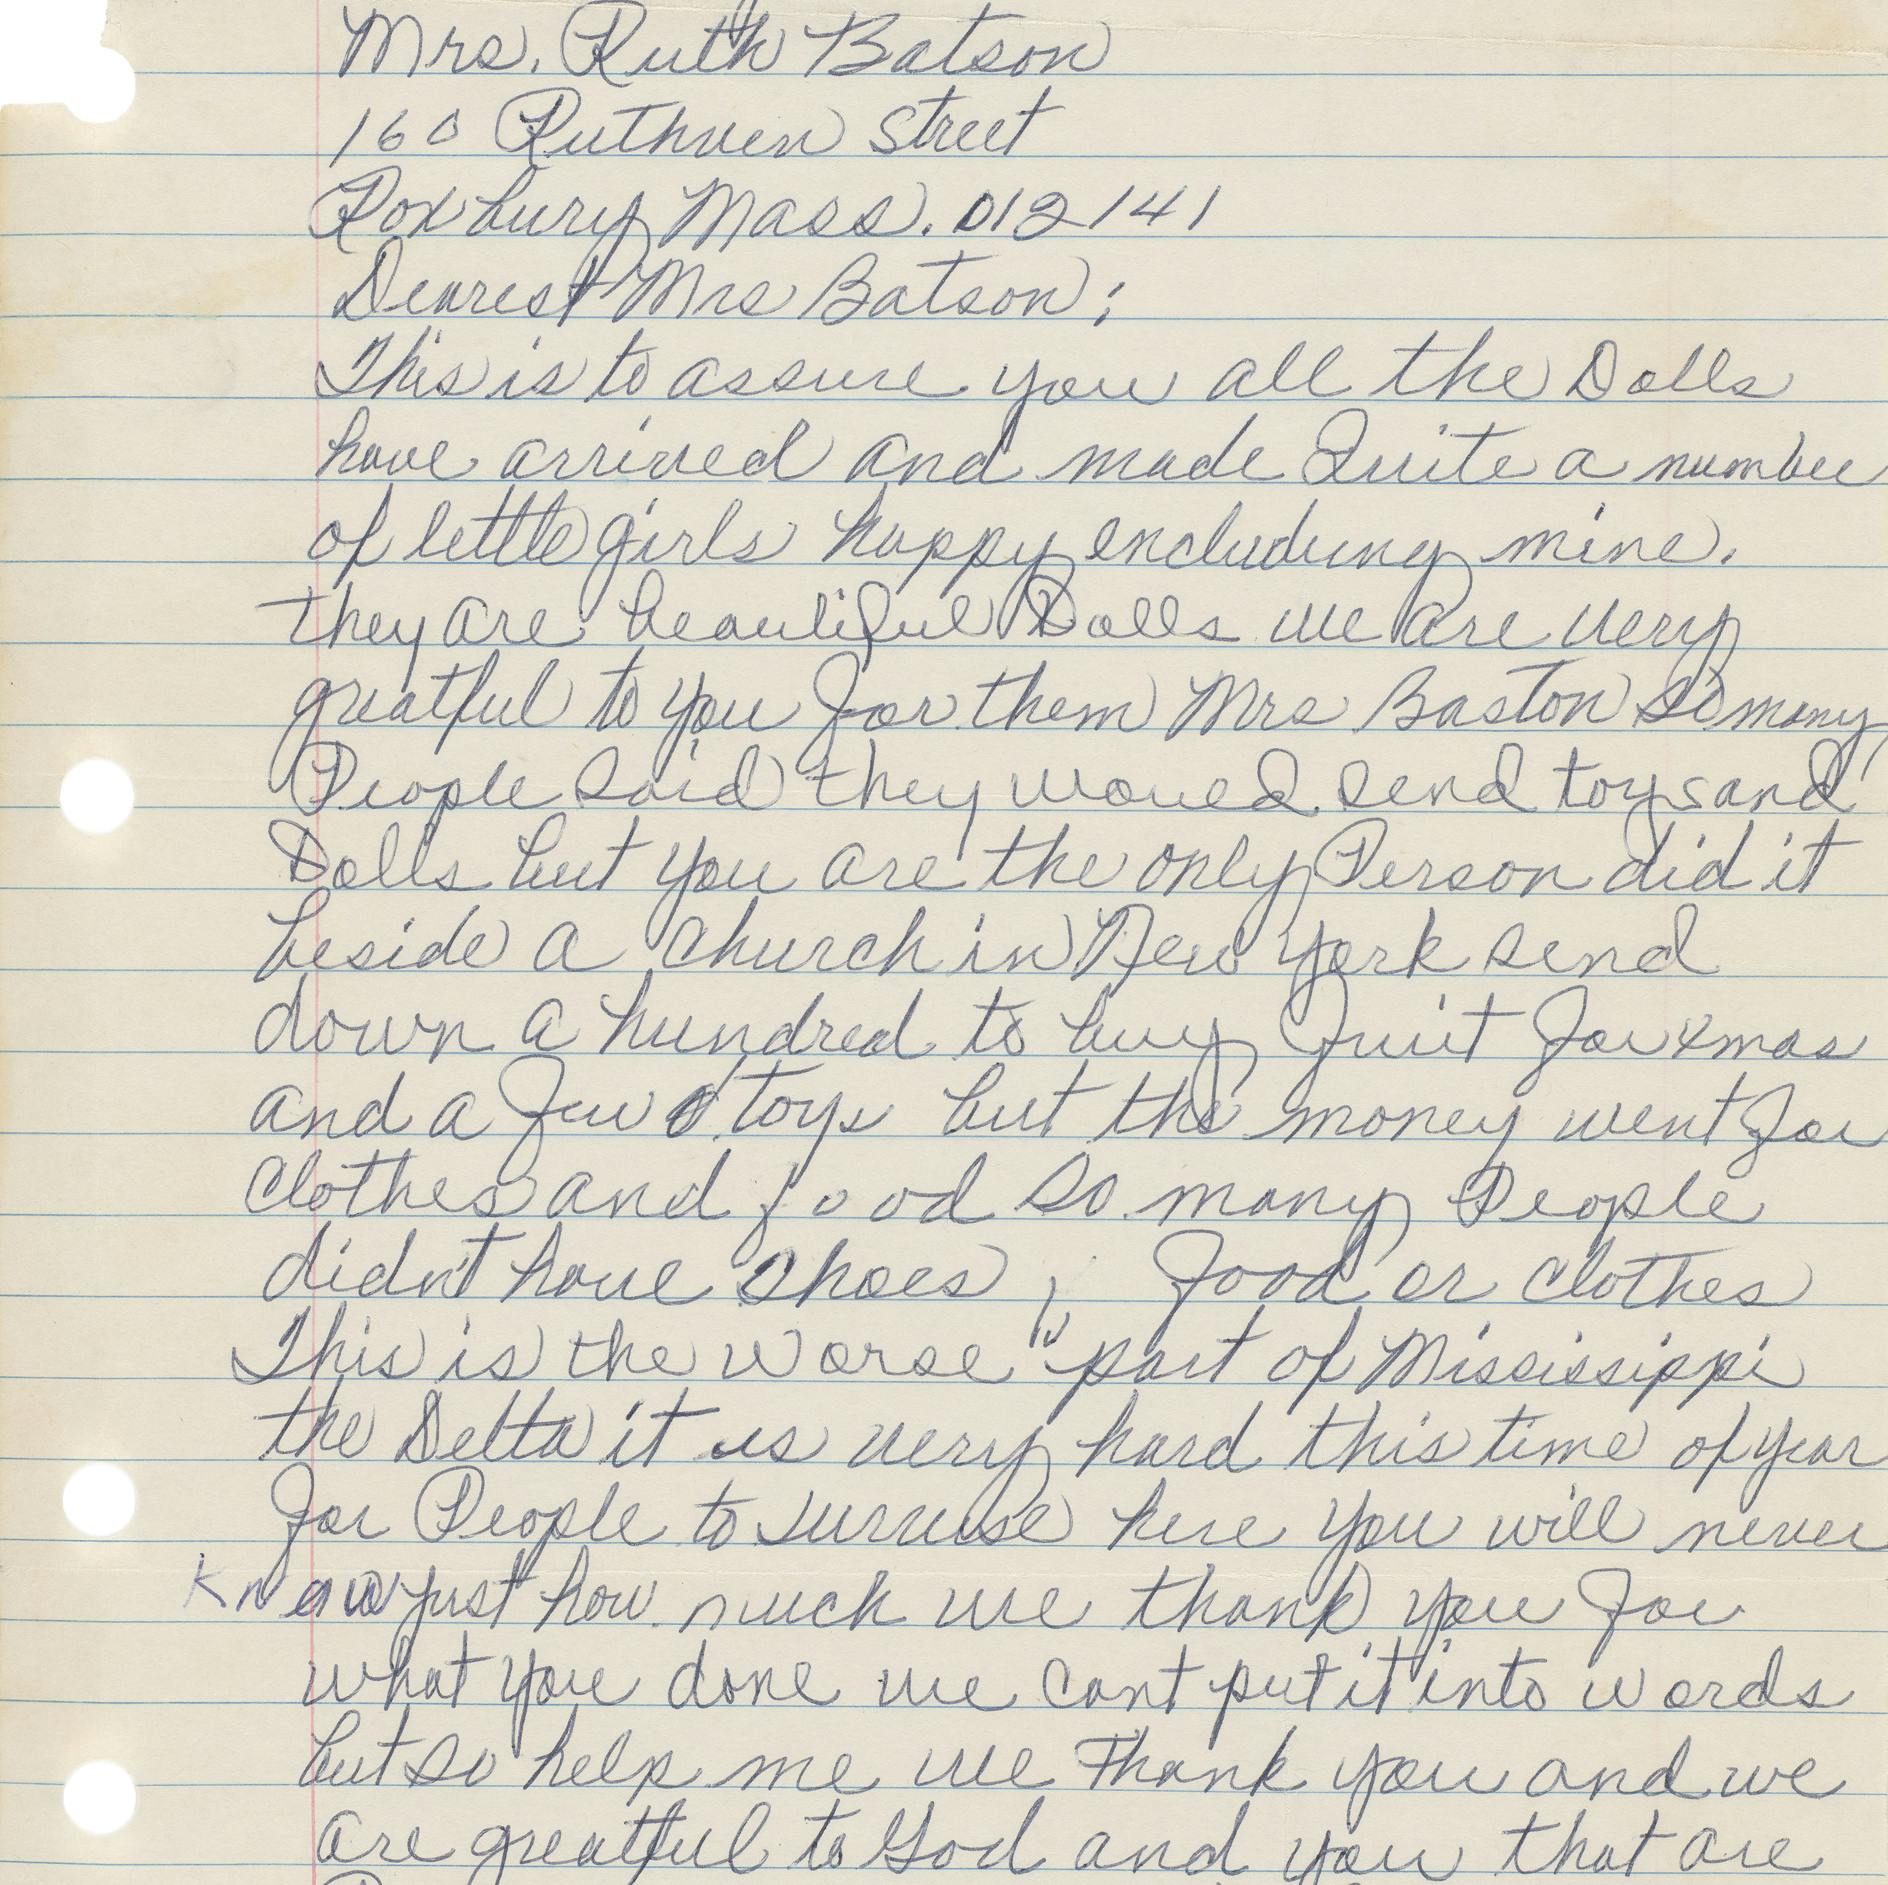 Mrs. Ruth Batson
160 Ruthven Street
Roxbury Mass. 012141
Dearest Mrs Batson;
This is to assure you all the Dolls
have arrived and made Quite a number
of little girls happy encluding mine.
they are beautiful Dolls we are very
greatful to you for them Mrs Baston so many
People said they woued send toys and
Dolls but you are the only Person did it
beside a church in New York send
down a hundred to buy fruit for xmas
and a few toys but the money went for
clothes and food so many People
didn't have shoes, food or clothes
This is the worse "part of Mississippi
the Delta it is very hard this time of year
for People to survive here you will never
know just how much we thank you for
what you done we cant put it into words
but so help me we Thank you and we
are greatful to God and you that are